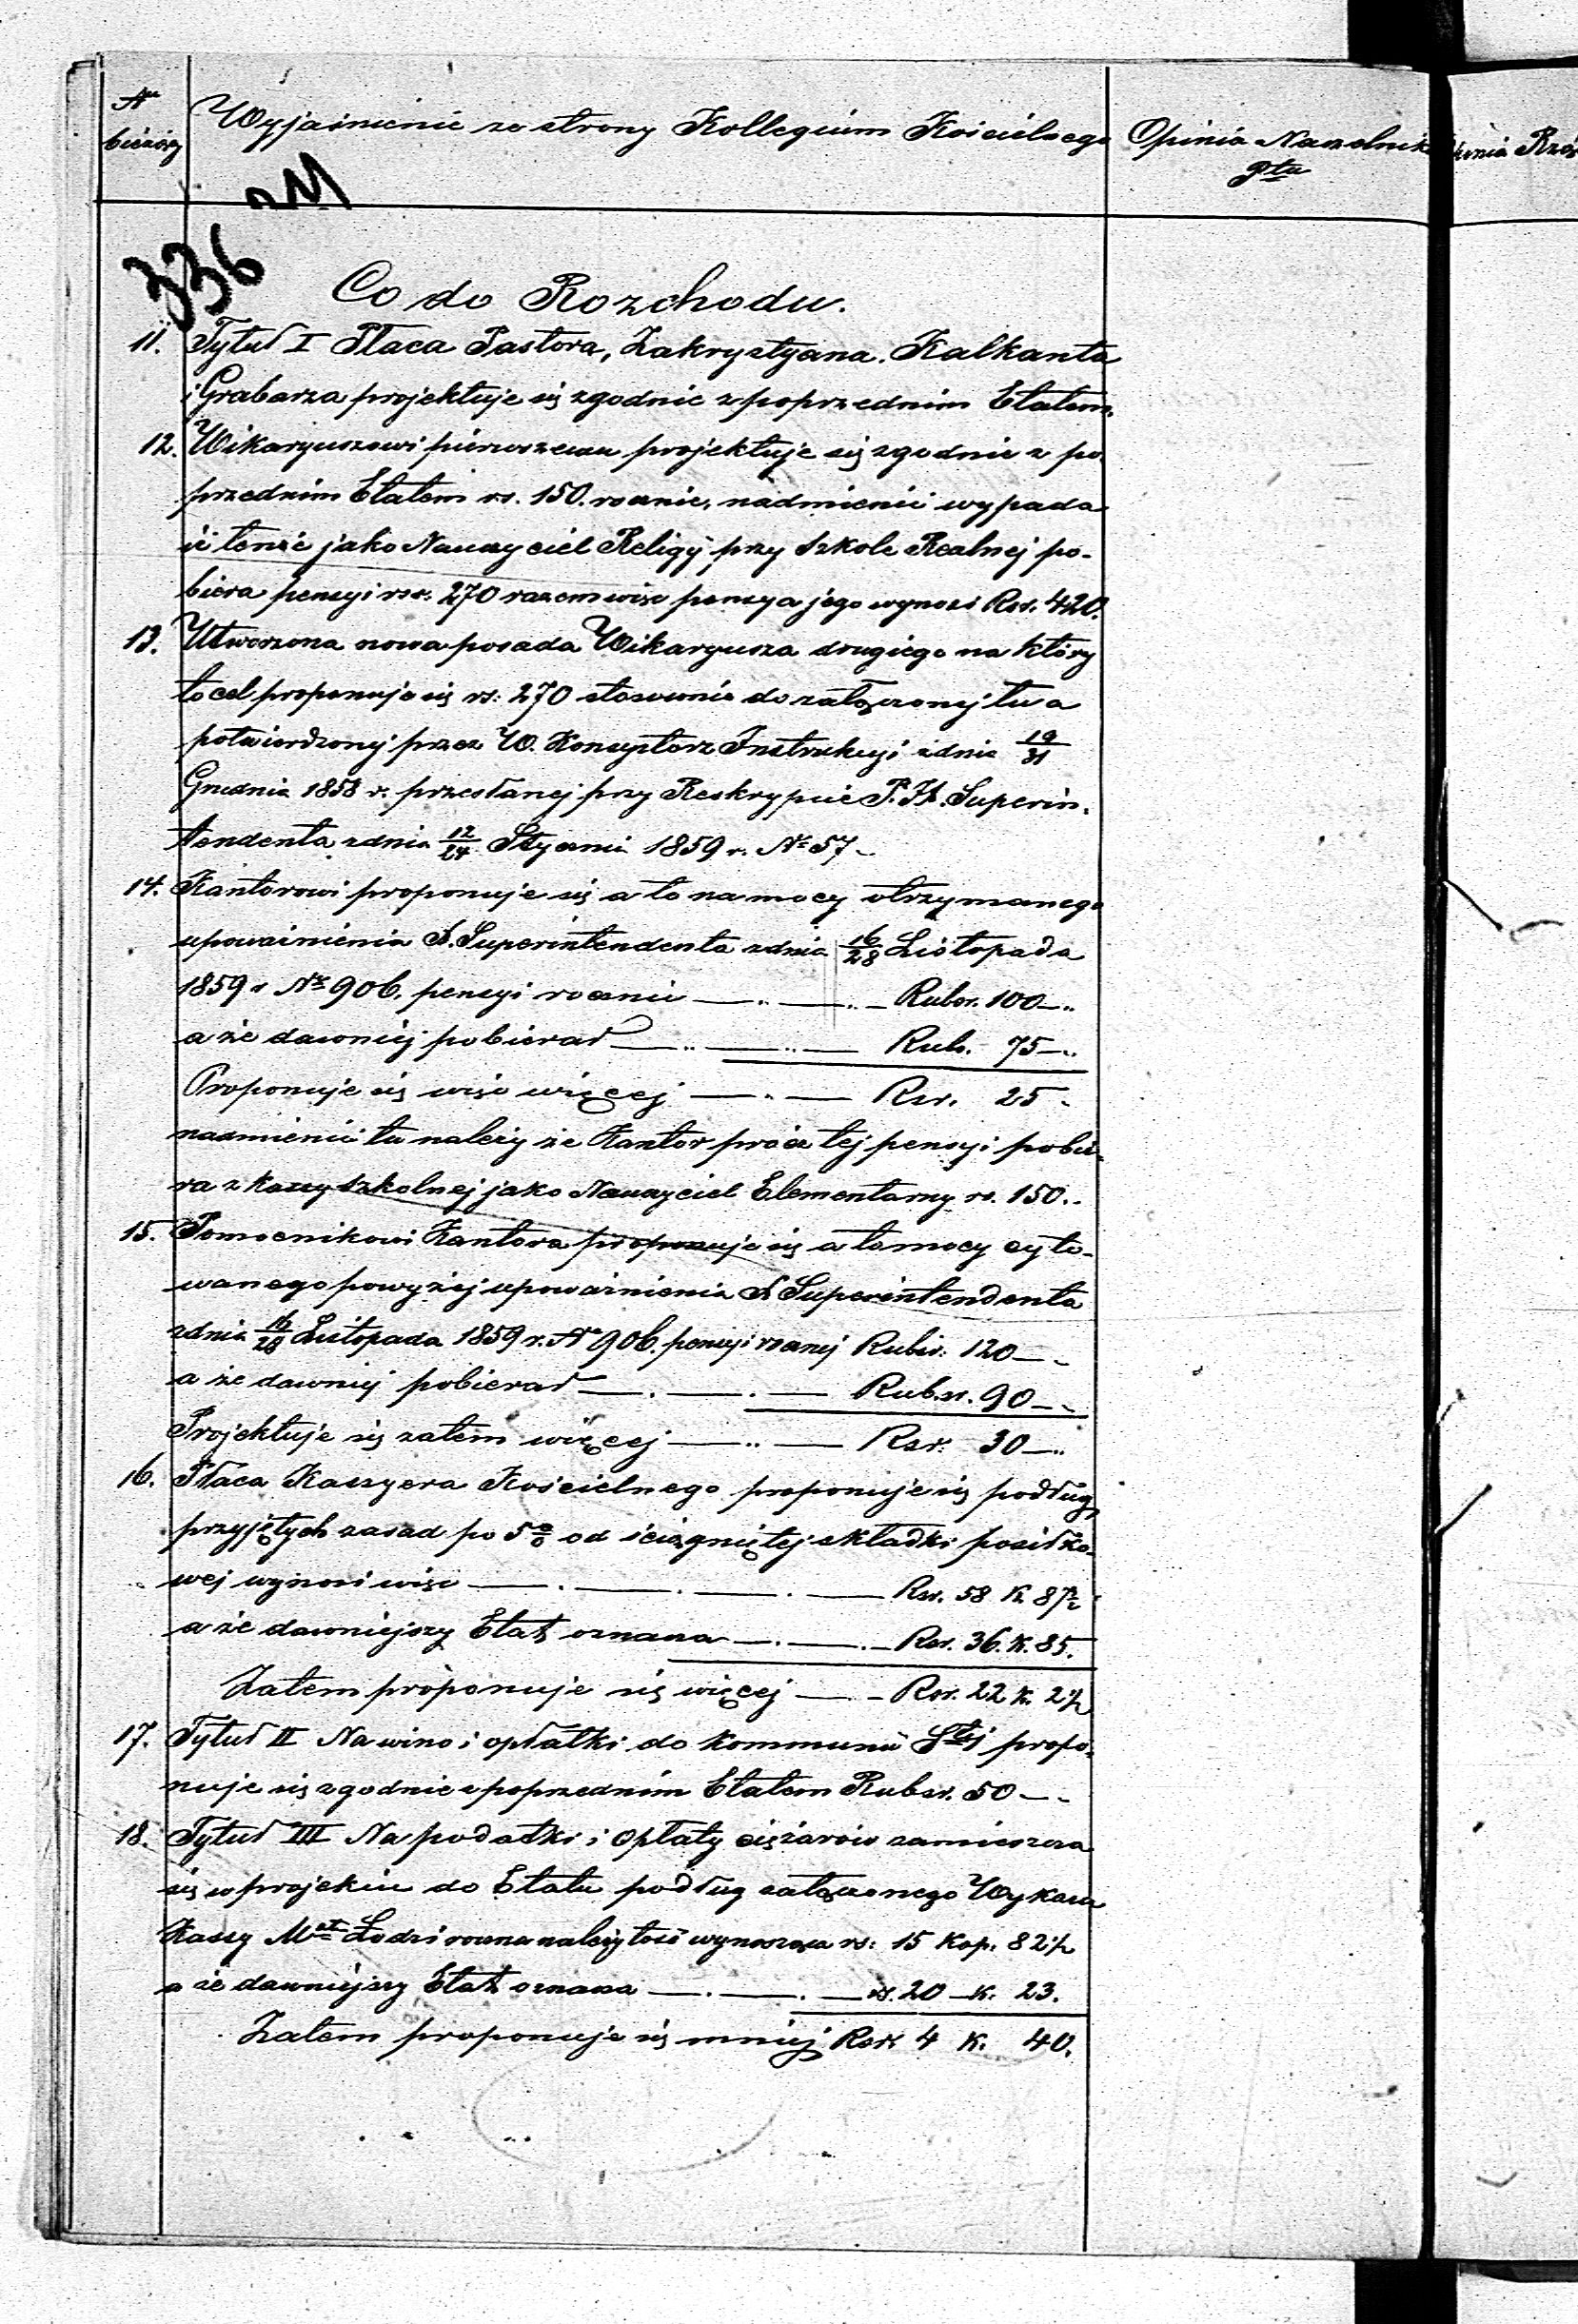 Nr bieżący
Wyjaśnienie ze strony Kollegium Kościelnego
Opinia Naczelnika Ptu
336
Co do Rozchodu.
11. Tytuł I Płaca Pastora, Zakrystyana, Kalkanta
i Grabarza projektuje się zgodnie z poprzednim Etatem.
12. Wikaryuszowi pierwszemu projektuje się zgodnie z po-
przednim Etatem rs. 150. rocznie, nadmienić wypada
iż tenże jako Nauczyciel Religij przy Szkole Realnej po-
biera pensyi rsr. 270 razem więc pensya jego wynosi Rsr. 420.
13. Utworzona nowa posada Wikaryusza drugiego na który
to cel proponuje się rs: 270 stosownie do załączonej tu a
potwierdzonej przez W. Konsystorz Instrukcyi z dnia 19/31
Grudnia 1858 r. przesłanej przy Reskrypcie P. H. Superin-
tendenta z dnia 12/24 Stycznia 1859 r. No 57 -
14. Kantorowi proponuje się a to na mocy otrzymanego
upoważnienia S. Superintendenta z dnia 16/28 Listopada
1859 r No 906. pensyi rocznie — .. — .. — Rubsr. 100 — ..
a że dawniej pobierał — .. — .. — Rub. 75 — ..
Proponuje się więc więcej — .. — Rsr. 25 -
nadmienić tu należy że Kantor prócz tej pensyi pobie-
ra z kassy szkolnej jako Nauczyciel Elementarny rs. 150. -
15. Pomocnikowi Kantora proponuje się a to mocy cyto-
wanego powyżej upoważnienia S. Superintendenta
z dnia 16/28 Listopada 1859 r. No 906. pensyi rocznej Rubsr: 120 — -
a że dawniej pobierał — . — . — Rub.sr. 90 — -
Projektuje się zatem więcej — .. — Rsr. 30 — ..
16. Płaca Kassyera Kościelnego proponuje się podług
przyjętych zasad po 5% od ściągniętej składki posiłko-
wej wynosi więc — . — . — . — Rsr. 58 K. 87½
a że dawniejszy Etat oznacza — . — . — Rsr. 36. K. 85.
Zatem proponuje się więcej — . — Rsr. 22 K. 2½
17. Tytuł II Na wino i opłatki do Kommunii Stej propo-
nuje się zgodnie z poprzednim Etatem Rubsr. 50 — -
18. Tytuł III Na podatki i Opłaty ciężarów zamieszcza
się w projekcie do Etatu podług załączonego Wykazu
Kassy Mta Łodzi roczna należytość wynosząca rs: 15 Kop. 82½
a że dawniejszy Etat oznacza — . — . — rs. 20 — K. 23.
Zatem proponuje się mniej Rsr. 4 K. 40.